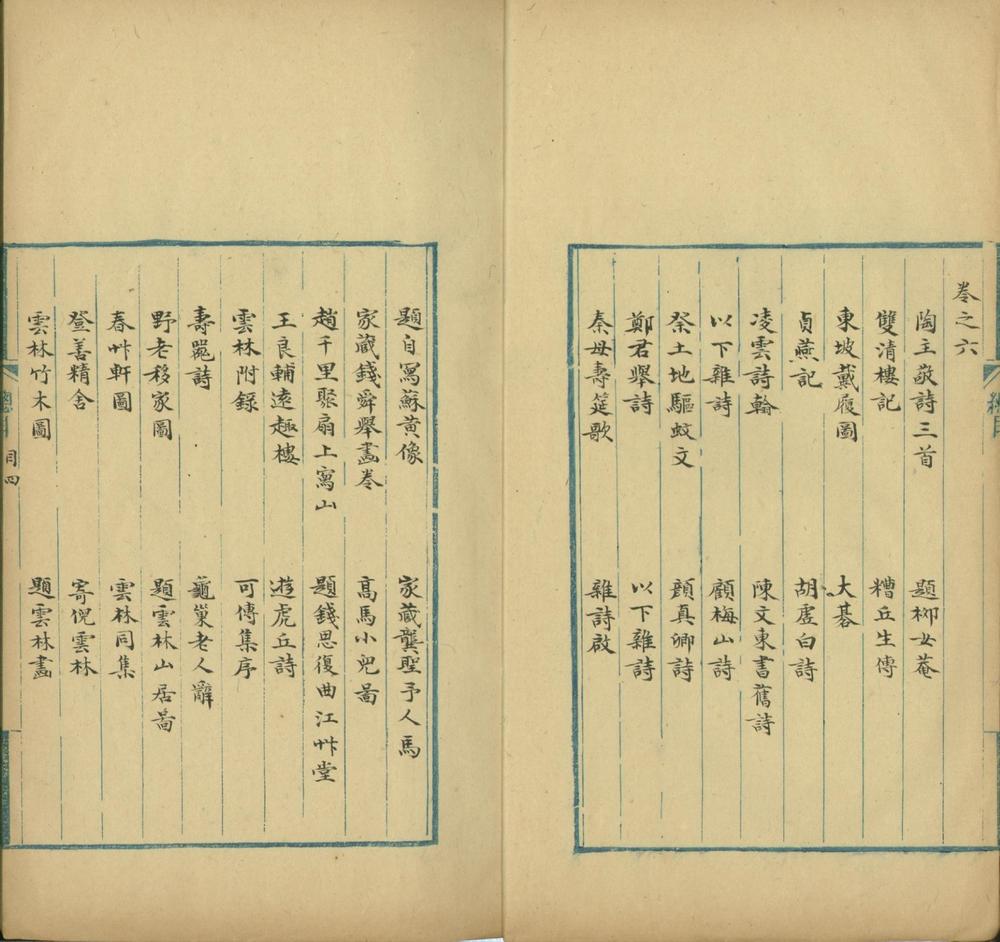 卷之六
陶主敬詩三首　題柳女菴
雙清樓記　糟丘生傳
東坡戴履圖　大碁
貞燕記　胡虛白詩
凌雲詩翰　陳文東書舊詩
以下雜詩　顧梅山詩
祭土地驅蚊文　顧真卿詩
鄭君舉詩　以下雜詩
秦母壽筵歌　雜詩啟
題自寫蘇黃像　家藏龔聖予人馬
家藏錢舜舉畫卷　高馬小兒啚
趙千里聚扇上寫山　題錢思復曲江艸堂
王良輔遠趣樓　遊虎丘詩
雲林附錄　可傳集序
壽甖詩　龜巢老人辭
野老移家圖　題雲林山居啚
春艸軒圖　雲林同集
登善精舍　寄倪雲林
雲林竹木圖　題雲林畫
總目
目四